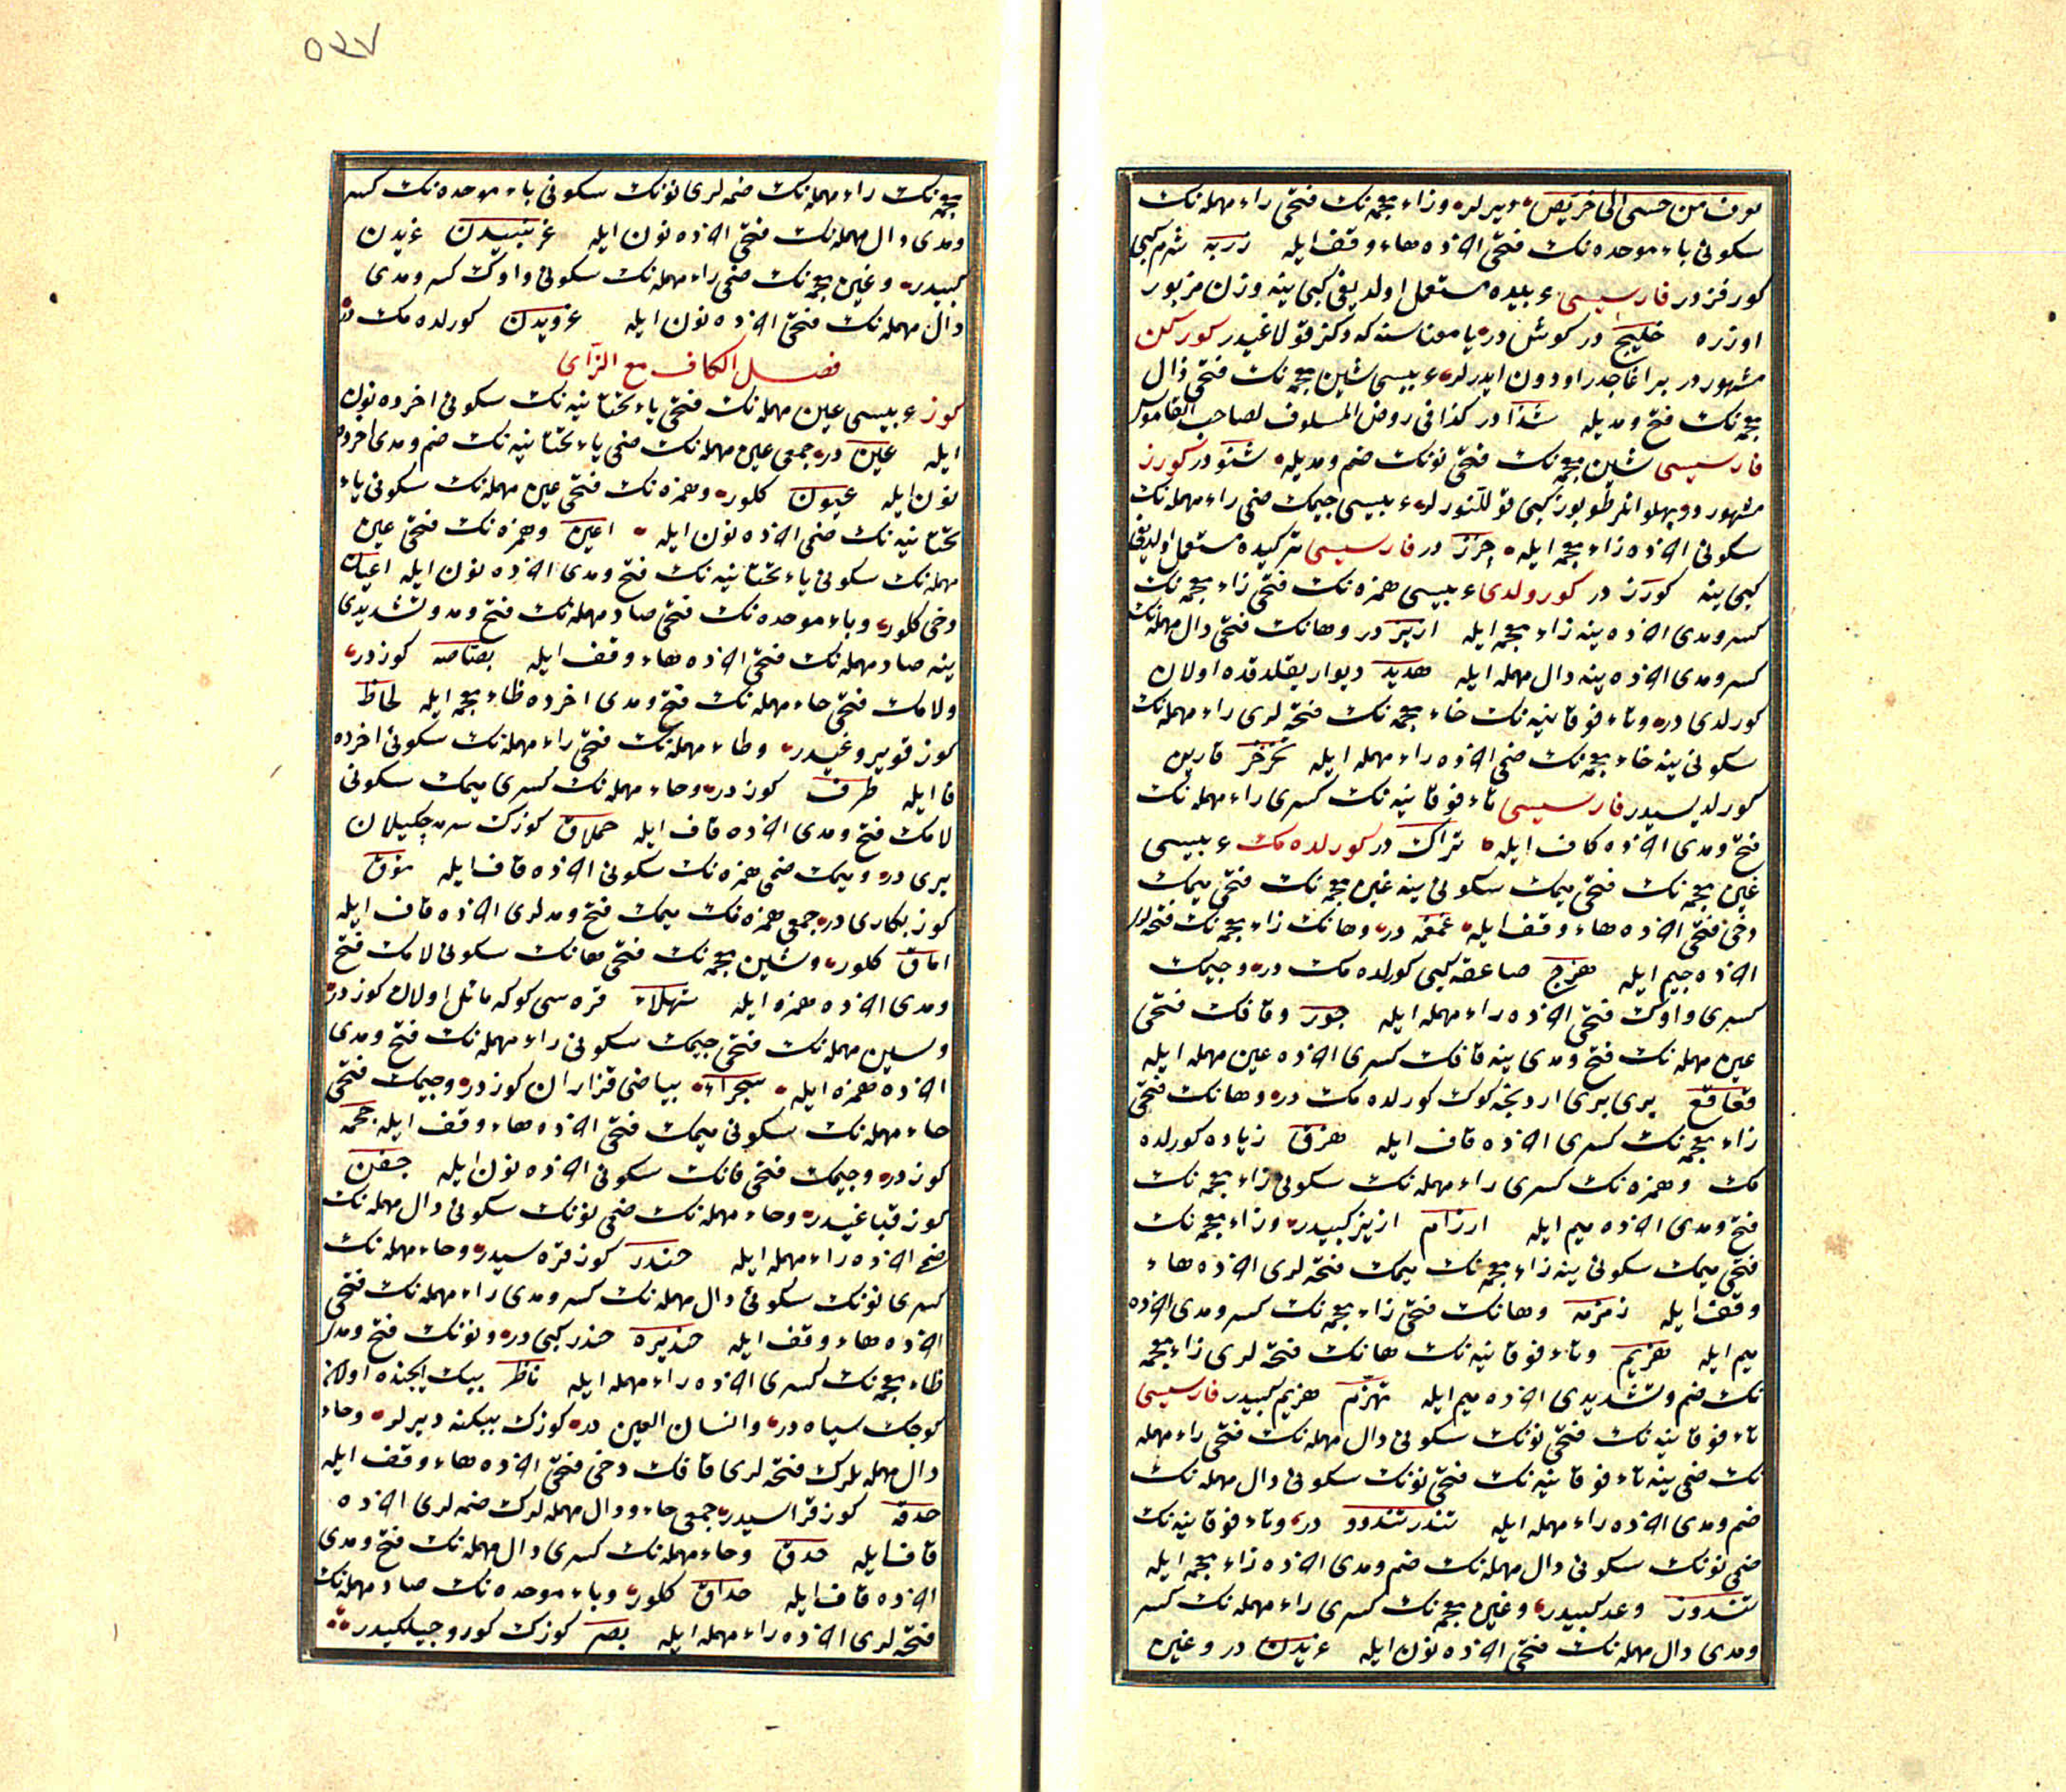 سكونی باء موحده نك فتحی اخرده هاء وقف ايله زربه شرم كبی
كورفزدر فارسيسی عربيده مستعمل اولديغی كبی ينه وزن مزبور
اوزره خليج در كوش در يا معناسنه كه دكز قولاغيدر كوركن
مشهور در بر اغاجدر اودون ايدرلر عربيسی شين معجمه نك فتحی ذال
معجمه نك فتح ومديله شذا در كذا فی روض المسلوف لصاحب القاموس
فارسيسی شين معجمه نك فتحی نونك ضم ومديله شنو در كورز
مشهور در پهلوانلر طوپوز كبی قوللنورلر عربيسی جيمك ضمی راء مهمله نك
سكونی اخرده زاء معجمه ايله جرز در فارسيسی تركيده مستعمل اولديغی
كبی ينه كورز در كورولدی عربيسی همزه نك فتحی زاء معجمه نك
كسر ومدی اخرده ينه زاء معجمه ايله ازيز در وهانك فتحی دال مهمله نك
كسر ومدی اخرده ينه دال مهمله ايله هديد ديوار يقلدقده اولان
كورلدی در وتاء فوقانيه نك خاء معجمه نك فتحه لری راء مهمله نك
سكونی ينه خاء معجمه نك ضمی اخرده راء مهمله ايله تخرخر قارين
كورلديسيدر فارسيسی تاء فوقانيه نك كسری راء مهمله نك
فتح ومدی اخرده كاف ايله تراك در كورلده مك عربيسی
غين معجمه نك فتحی ميمك سكونی ينه غين معجمه نك فتحی ميمك
دخی فتحی اخرده هاء وقف ايله غمغمه در وهانك زاء معجمه نك فتحه لری
اخرده جيم ايله هزج صاعقه كبی كورلده مك در وجيمك
كسری واوك فتحی اخرده راء مهمله ايله جور وقافك فتحی
عين مهمله نك فتح ومدی ينه قافك كسری اخرده عين مهمله ايله
قعاقع بری بری اردنجه كوك كورلده مك در وهانك فتحی
زاء معجمه نك كسری اخرده قاف ايله هزق زياده كورلده
مك وهمزه نك كسری راء مهمله نك سكونی زاء معجمه نك
فتح ومدی اخرده ميم ايله ارزام ازيز كبيدر وزاء معجمه نك
فتحی ميمك سكونی ينه زاء معجمه نك ميمك فتحه لری اخرده هاء
وقف ايله زمزمه وهانك فتحی زاء معجمه نك كسر ومدی اخرده
ميم ايله هزيم وتاء فوقانيه نك هانك فتحه لری زاء معجمه
نك ضم وتشديدی اخرده ميم ايله تهزم هزيم كبيدر فارسيسی
تاء فوقانيه نك فتحی نونك سكونی دال مهمله نك فتحی راء مهمله
نك ضمی ينه تاء فوقانيه نك فتحی نونك سكونی دال مهمله نك
ضم ومدی اخرده راء مهمله ايله تندر تندور در وتاء فوقانيه نك
ضمی نونك سكونی دال مهمله نك ضم ومدی اخرده زاء معجمه ايله
تندوز وعد كبيدر وغين معجمه نك كسری راء مهمله نك كسر
ومدی دال مهمله نك فتحی اخرده نون ايله غريدن در وغين
٥٣٧
معجمه نك راء مهمله نك ضمه لری نونك سكونی باء موحده نك كسر
ومدی دال مهمله نك فتحی اخرده نون ايله غرنبيدن غريدن
كبيدر وغين معجمه نك ضمی راء مهمله نك سكونی واوك كسر ومدی
دال مهمله نك فتحی اخرده نون ايله غرويدن كورلده مك در
فصل الكاف مع الزای
كوز عربيسی عين مهمله نك فتحی ياء تحتانيه نك سكونی اخرده نون
ايله عين در جمعی عين مهمله نك ضمی ياء تحتانيه نك ضم ومدی اخرده
نون ايله عيون كلور وهمزه نك فتحی عين مهمله نك سكونی ياء
تحتانيه نك ضمی اخرده نون ايله اعين وهمزه نك فتحی عين
مهمله نك سكونی ياء تحتانيه نك فتح ومدی اخرده نون ايله اعيان
دخی كلور وباء موحده نك فتحی صاد مهمله نك فتح ومد وتشديدی
ينه صاد مهمله نك فتحی اخرده هاء وقف ايله بصاصه كوز در
ولامك فتحی حاء مهمله نك فتح ومدی اخرده ظاء معجمه ايله لحاظ
كوز قويروغيدر وطاء مهمله نك فتحی راء مهمله نك سكونی اخرده
فا ايله طرف كوز در وحاء مهمله نك كسری ميمك سكونی
لامك فتح ومدی اخرده قاف ايله حملاق كوزك سرمه چكيلان
يری در وميمك ضمی همزه نك سكونی اخرده قاف ايله مؤق
كوز بكاری در جمعی همزه نك ميمك فتح ومدلری اخرده قاف ايله
اماق كلور وشين معجمه نك فتحی هانك سكونی لامك فتح
ومدی اخرده همزه ايله شهلاء قره سی كوكه مائل اولان كوز در
وسين مهمله نك فتحی جيمك سكونی راء مهمله نك فتح ومدی
اخرده همزه ايله سجراء بياضی قزاران كوز در وجيمك فتحی
حاء مهمله نك سكونی ميمك فتحی اخرده هاء وقف ايله جحمه
كوز در وجيمك فتحی فانك سكونی اخرده نون ايله جفن
كوز قپاغيدر وحاء مهمله نك ضمی نونك سكونی دال مهمله نك
ضمی اخرده راء مهمله ايله حندر كوز قره سيدر وحاء مهمله نك
كسری نونك سكونی دال مهمله نك كسر ومدی راء مهمله نك فتحی
اخرده هاء وقف ايله حنديره حندر كبی در ونونك فتح ومدی
ظاء معجمه نك كسری اخرده راء مهمله ايله ناظر ببك ايچنده اولان
كوچك سياه در وانسان العين در كوزك ببكنه ديرلر وحاء
دال مهمله لرك فتحه لری قافك دخی فتحی اخرده هاء وقف ايله
حدقه كوز قراسيدر جمعی حاء ودال مهمله لرك ضمه لری اخرده
قاف ايله حدق وحاء مهمله نك كسری دال مهمله نك فتح ومدی
اخرده قاف ايله حداق كلور وباء موحده نك صاد مهمله نك
فتحه لری اخرده راء مهمله ايله بصر كوزك كوروجيلكيدر